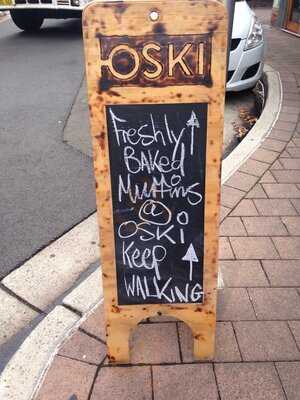 OSKI
freshly
BAKed
Muffins
@
OSKi
Keep
WALKING